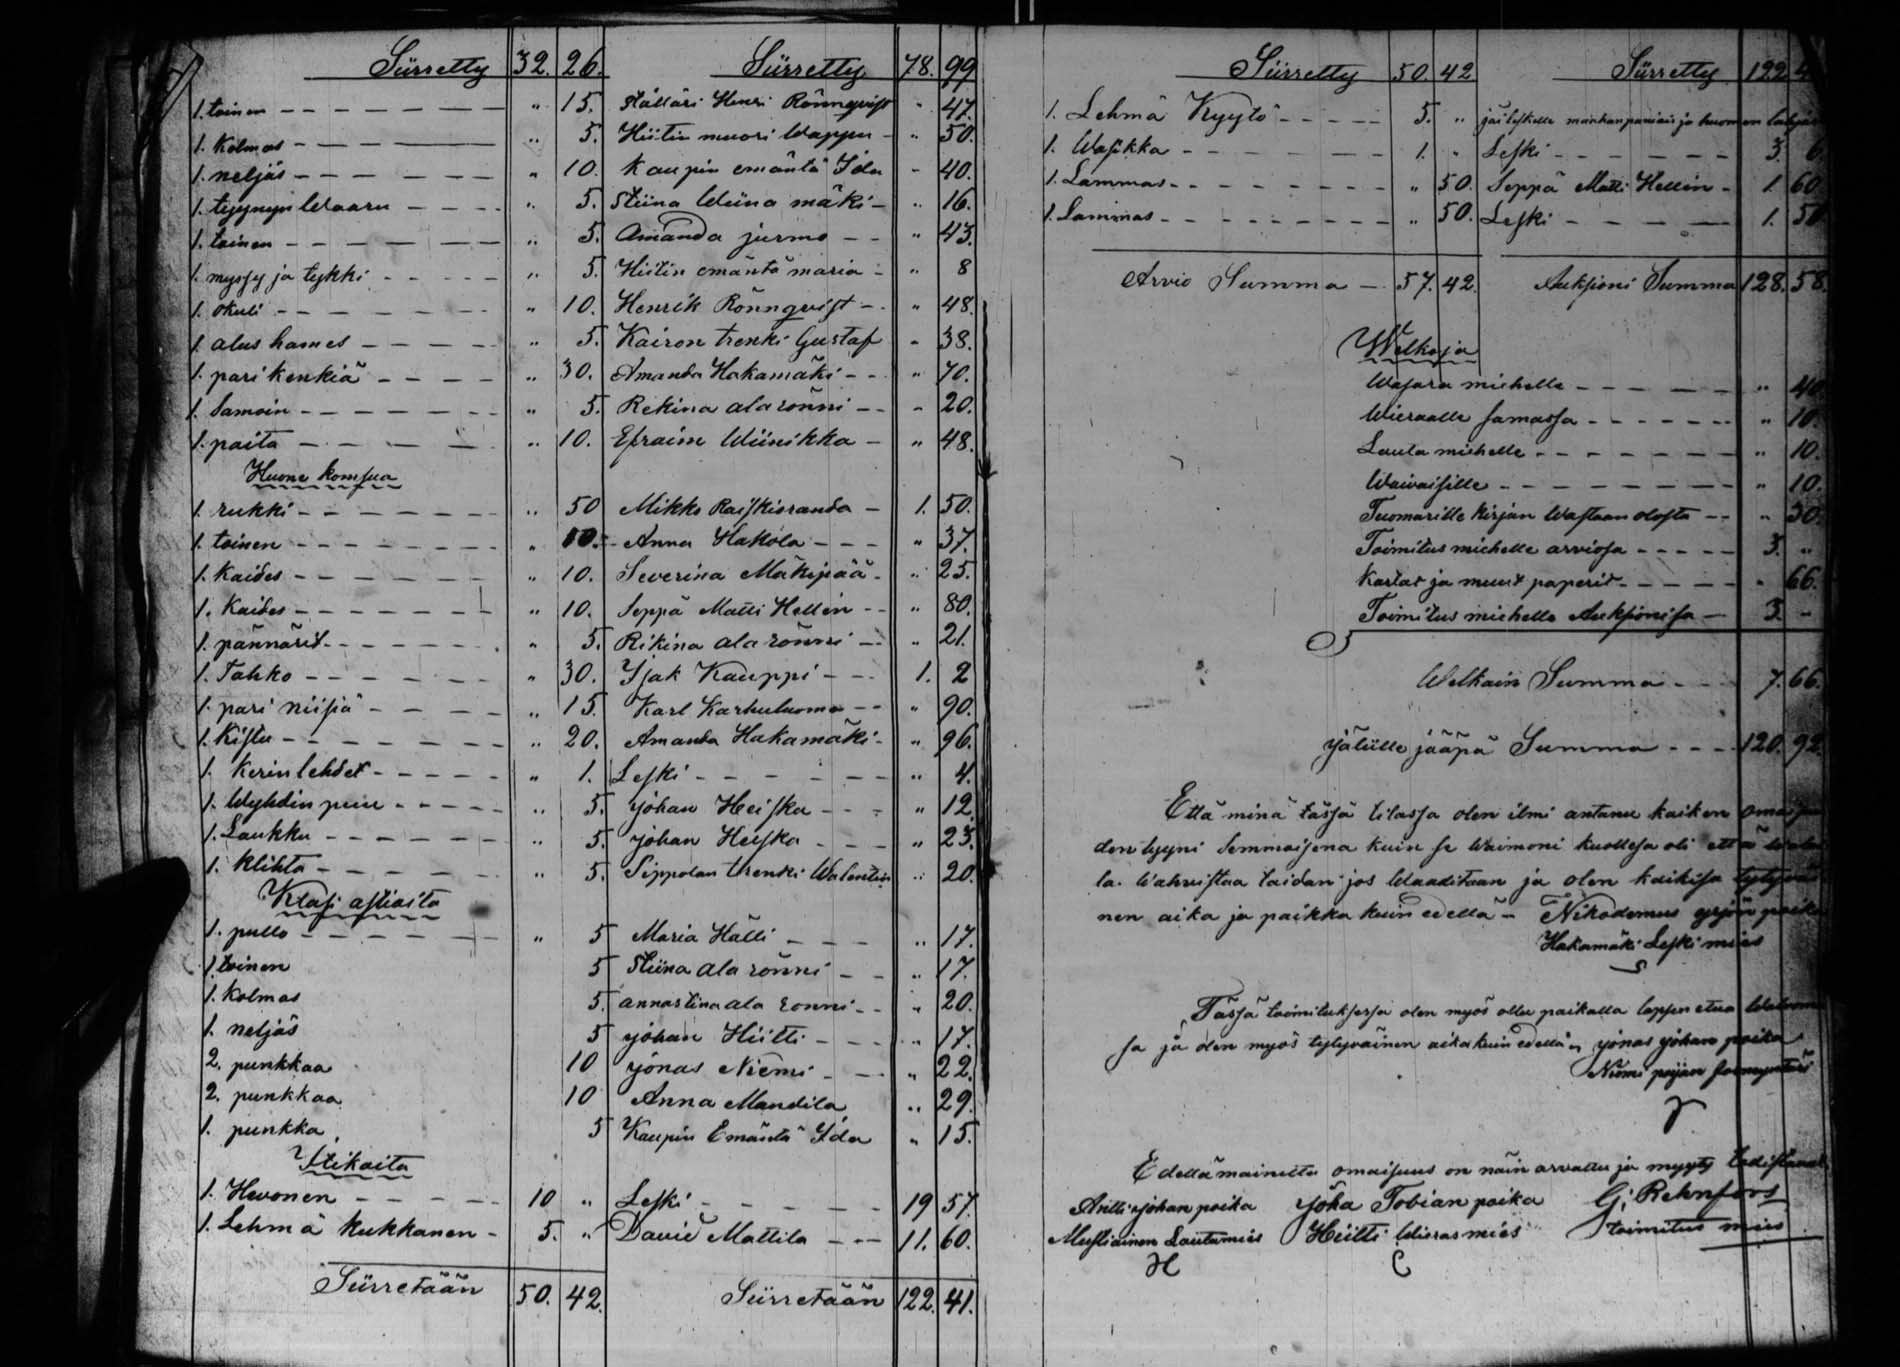 Siirretty 32. 26. Siirretty 78. 99
1. toinen - - - " 15. Hälläri Henri Rönnqvist " 47.
1. Kolmas - - - " 5. Hiitin muori Wappu - " 50.
1. neljäs - - - " 10. Kaupin emäntä Ida - 40.
1. tyynyn Waaru - - - " 5. Stiina Wiina mäki - " 16.
1. toinen - - - " 5. Amanda jurmo - - " 43.
1. myssy ja tykki - - - " 5. Hiitin emäntä maria - " 8
1. okuli - - - " 10. Henrik Rönnqvist - - " 48.
1. alus hames - - - " 5. Kairon trenki Gustaf - 38.
1. pari kenkiä - - - " 30. Amanda Hakamäki - - " 70.
1. Samoin - - - " 5. Rekina ala rönni - - " 20.
1. paita - - - " 10. Efraim Wiinikka - " 48.
Huone komsua
1. rukki - - - " 50 Mikko Raiskioranda - 1. 50.
1. toinen - - - " 10. Anna Hakola - - - " 37.
1. Kaides - - - " 10. Severina Mäkipää - " 25.
1. Kaides - - - " 10. Seppä Matti Hellin - - " 80.
1. pännärit - - - " 5. Rikina ala rönni - - " 21.
1. Tahko - - - " 30. Isak Kauppi - - - 1. 2
1. pari niisiä - - - " 15. Karl Karhuluoma - - " 90.
1. Kistu - - - " 20. Amanda Hakamäki - " 96.
1. Kerinlehdet - - - " 1. Leski - - - " 4.
1. Wyhdin puu - - - " 5. johan Heiska - - - " 12
1. Laukku - - - " 5. johan Heiska - - - " 23.
1. klihta - - - " 5. Sippolan trenki Walentin " 20.
Klasi astioita
1. pullo - - - " 5 Maria Hälli - - - " 17.
1. toinen 5 Stiina ala rönni - - " 17.
1. Kolmas 5. annastina ala ronni - - " 20.
1. neljäs 5 johan Hiitti - - - " 17.
2. punkkaa 10 jonas Niemi - - - " 22.
2. punkkaa 10 Anna Mandila " 29.
1. punkka 5 Kaupin Emäntä Ida " 15.
Itikoita
1. Hevonen - - - 10 " Leski - - - 19 57.
1. Lehmä kukkanen - 5. " David Mattila - - - 11. 60.
Siirretään 50. 42. Siirretään 122. 41.
Siirretty 50. 42 Siirretty 122
1. Lehmä Kyytö - - - 5. " jäi leskelle
1. Wasikka - - - 1. " Leski - - - 3. 6.
1. Lammas - - - " 50. Seppä Matti Hellin - 1. 60
1. Lammas - - - " 50. Leski - - - 1. 50
Arvio Summa - 57. 42. Auksioni Summa 128. 58.
Welkoja
Wasara miehelle - - - " 40
Wieraalle samassa - - - " 10.
Lauta miehelle - - - " 10.
Waivaisille - - - " 10.
Tuomarille kirjan Wastaan olosta - - " 30.
Toimitus miehelle arviosa - - - 3. "
Kartat ja muut paperit - - - " 66.
Toimitus miehelle Auksionisa - 3. -
Welkain Summa - - - 7. 66.
jälille jääpä Summa - - - 120. 92
Että minä tässä tilassa olen ilmi antanu kaiken omaisu
den tyyni Semmoisena kuin se Waimoni kuollesa oli että
la. Wahvistaa taidan jos Waaditaan ja olen kaikisa tytyväi
nen aika ja paikka kuin edellä - Nikodemus yrjön poika
Hakamäki Leski mies
Tässä toimituksessa olen myös ollu paikalla lapsen etua
sa ja olen myös tytyväinen aika kuin edellä " jonas johan poika
Niemi pojan
Edellämainittu omaisuus on näin arvattu ja myyty todistavat
Antti johan poika Joha Tobian poika G: Rehnfors
Mustiainen Lautamies Hiitti Wieras mies toimitus mies